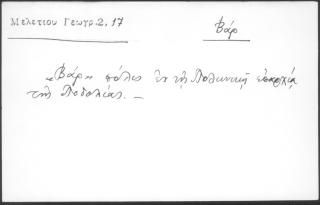 Μελετίου Γεωγρ. 2, 17
Βάρ
"Βάρ" πόλις ἐν τῇ Πολωνικῇ ἐπαρχίᾳ
τῆς Ποδολίας. —